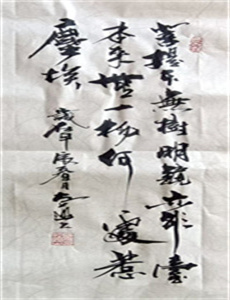 菩提本無樹明鏡亦非臺
本來無一物何處惹
塵埃
歲在春月